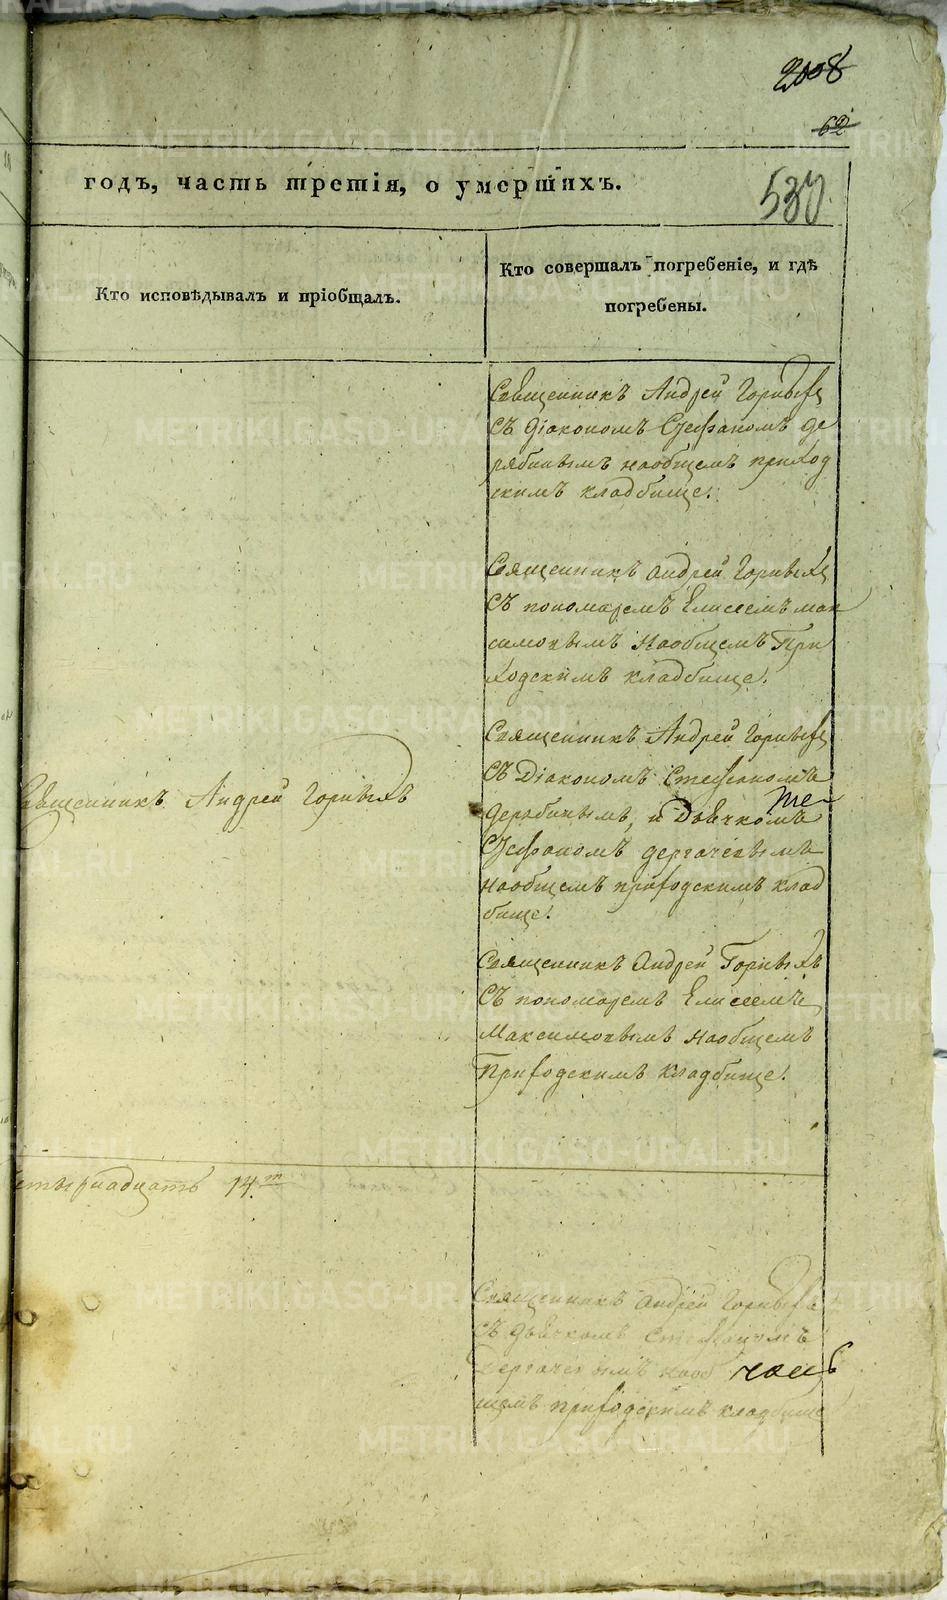 2008
62
537
годъ, часть третія, о умершихъ.
Кто исповѣдывалъ и пріобщалъ.
Кто совершалъ погребеніе, и гдѣ
погребены.
Священникъ Андрей Горныхъ
съ Діакономъ Стефаномъ де
рябинымъ наобщемъ приход
скимъ кладбище.
Священникъ Андрей Горныхъ
съ пономаремъ Елисеемъ мак
симовымъ наобщемъ При
ходскимъ кладбище.
Священникъ Андрей Горныхъ
Священникъ Андрей Горныхъ
съ Діакономъ Стефаномъ
дерябинымъ, и Дьячкомъ
Сте
Стефаномъ дергачевымъ
наобщемъ приходскимъ клад
бище.
Священникъ Андрей Горныхъ
съ пономаремъ Елисеемъ
Максимовымъ наобщемъ
Приходскимъ кладбище.
етырнадцать 14.т
Священникъ Андрей Горныхъ
съ дьячкомъ Стефаномъ
Дергачевымъ наоб часъ
щемъ приходскимъ кладбище
METRIKI.GASO-URAL.RU